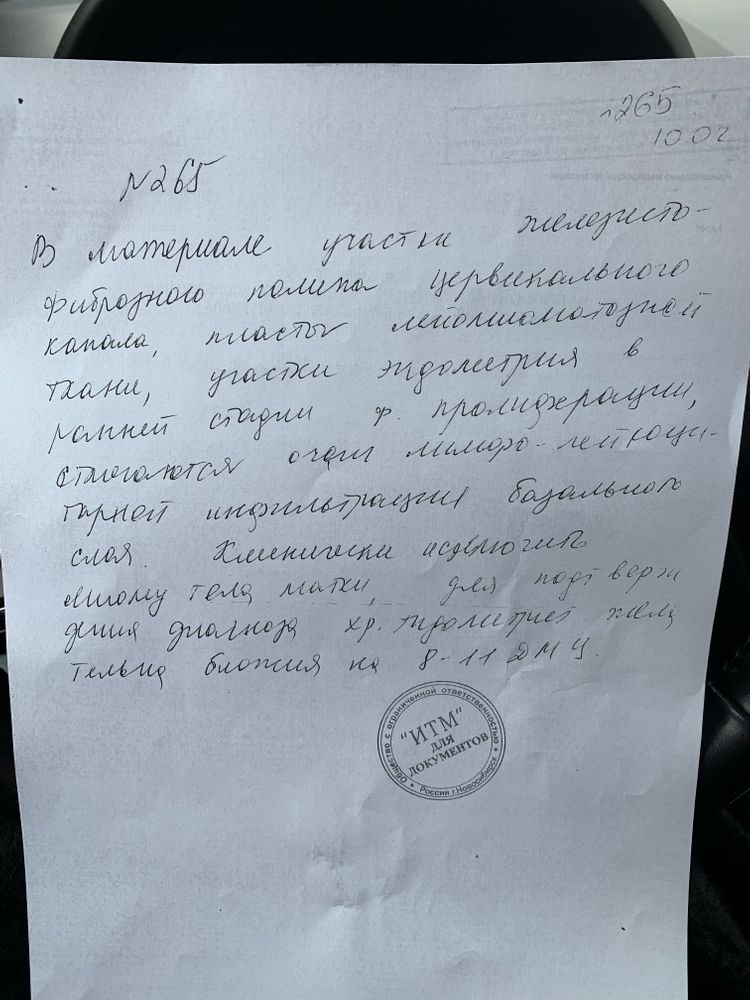 №265
10.02
№265
В материале участки железисто-
фиброзного полипа цервикального
канала, пласты лейомиоматозной
ткани, участки эндометрия в
ранней стадии ф. пролиферации,
очаги лимфо-лейкоци-
тарной инфильтрации базального
слоя. Клинически исключить
миому тела матки, для подтверж
дения диагноза хр. эндометрит жела
тельна биопсия на 8-11 ДМЦ.
Общество с ограниченной ответственностью
"ИТМ"
ДЛЯ
ДОКУМЕНТОВ
Россия г.Новосибирск